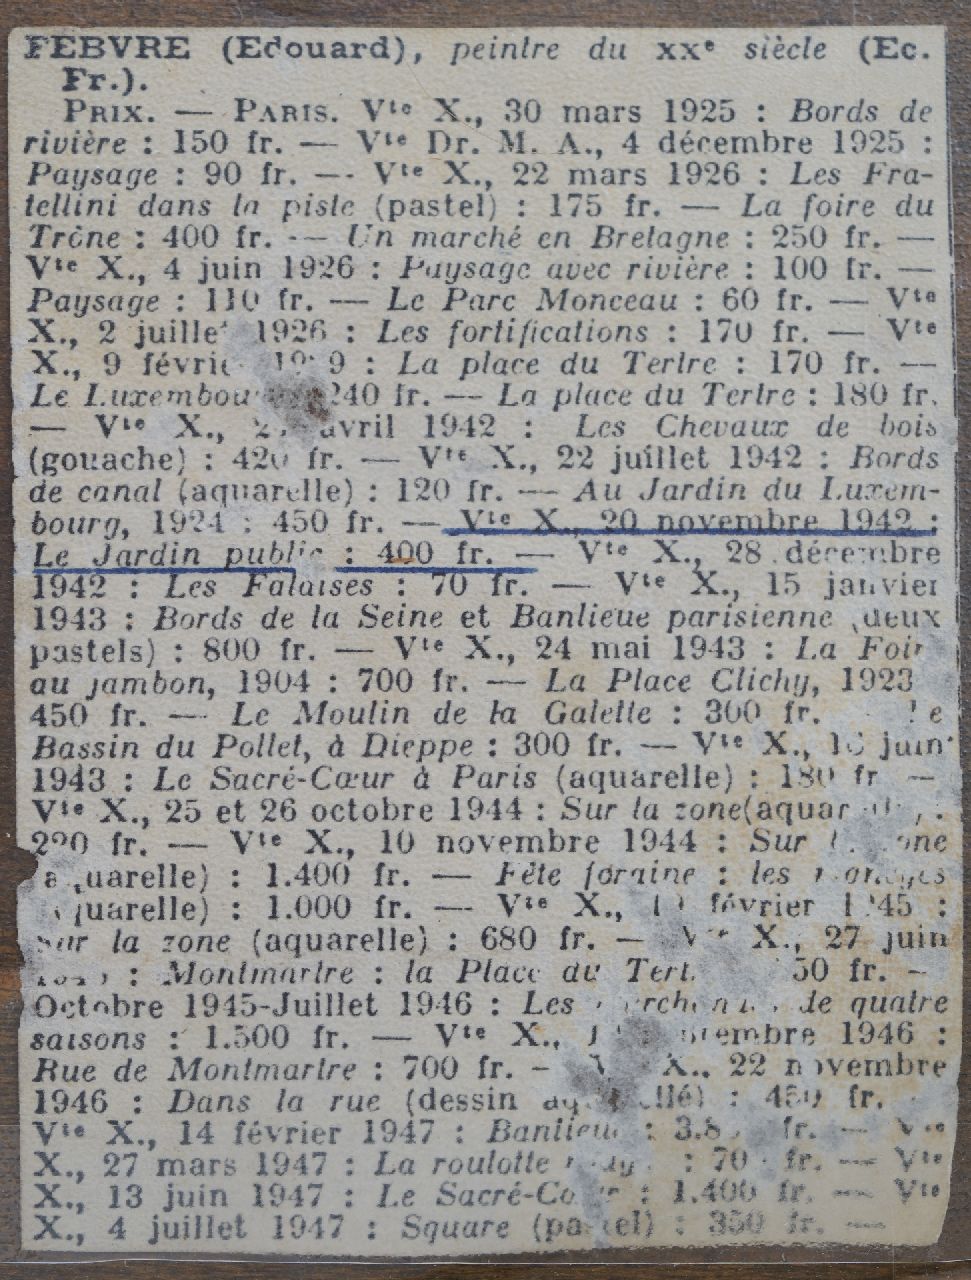 FEBVRE (Edouard), peintre du XXe siècle (Ec.
Fr.).
PRIX. — PARIS. Vte X., 30 mars 1925 : Bords de
rivière : 150 fr. — Vte Dr. M. A., 4 décembre 1925 :
Paysage : 90 fr. — Vte X., 22 mars 1926 : Les Fra-
tellini dans la piste (pastel) : 175 fr. — La foire du
Trône : 400 fr. — Un marché en Bretagne : 250 fr. —
Vte X., 4 juin 1926 : Paysage avec rivière : 100 fr. —
Paysage : 110 fr. — Le Parc Monceau : 60 fr. — Vte
X., 2 juillet 1926 : Les fortifications : 170 fr. — Vte
X., 9 : La place du Tertre : 170 fr. —
Le 240 fr. — La place du Tertre : 180 fr.
— Vte X., avril 1942 : Les Chevaux de bois
(gouache) : 420 fr. — Vte X., 22 juillet 1942 : Bords
de canal (aquarelle) : 120 fr. — Au Jardin du Luxem-
bourg, 1924 : 450 fr. — Vte X., 20 novembre 1942 :
Le Jardin public : 400 fr. — Vte X., 28 décembre
1942 : Les Falaises : 70 fr. — Vte X., 15 janvier
1943 : Bords de la Seine et Banlieue parisienne (deux
pastels) : 800 fr. — Vte X., 24 mai 1943 : La Foire
au jambon, 1904 : 700 fr. — La Place Clichy, 1923
450 fr. — Le Moulin de la Galette : 300 fr. — Le
Bassin du Pollet, à Dieppe : 300 fr. — Vte X., juin
1943 : Le Sacré-Cœur à Paris (aquarelle) : 180 fr —
Vte X., 25 et 26 octobre 1944 : Sur la zone
220 fr. — Vte X., 10 novembre 1944 : Sur zone
(aquarelle) : 1.400 fr. — Fête foraine : les manèges
(aquarelle) : 1.000 fr. — Vte X., février 1945 :
Sur la zone (aquarelle) : 680 fr. — Vte X., 27 juin
: Montmartre : la Place du fr. —
Octobre 1945-Juillet 1946 : Les de quatre
saisons : 1.500 fr. — Vte X., 1946 :
Rue de Montmartre : 700 fr. — X., 22 novembre
1946 : Dans la rue (dessin : fr.
Vte X., 14 février 1947 : Banlieue : fr. — Vte
X., 27 mars 1947 : La roulotte : fr. — Vte
X., 13 juin 1947 : Le Sacré-Cœur : 1.400 fr. — Vte
X., 4 juillet 1947 : Square (pastel) : 350 fr. —